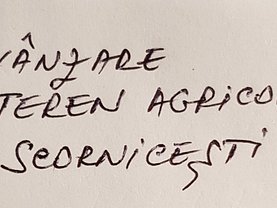 VÂNZARE
TEREN AGRICO
SCORNICEȘTI